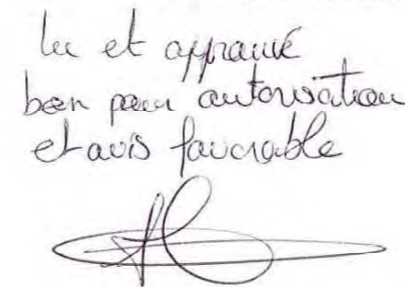 lu et approuvé
bon pour autorisation
et avis favorable